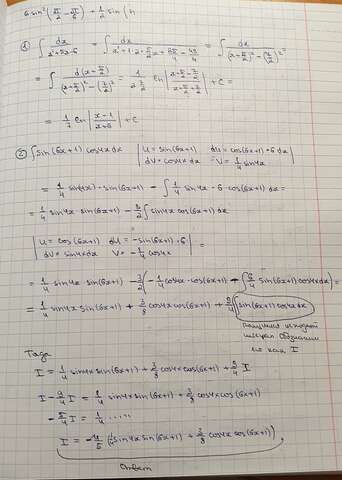 6 sin²(5π/2 - 5π/6) + 1/2 sin(π
① ∫ dx/(x²+5x-6) = ∫ dx/(x²+1·2·5/2x+25/4-49/4) = ∫ dx/((x+5/2)²-(7/2)²)
= ∫ d(x+5/2)/((x+5/2)²-(7/2)²) = 1/(2·7/2) ln|(x+5/2-7/2)/(x+5/2+7/2)| + C =
= 1/7 ln|(x-1)/(x+6)| + C
② ∫ sin(6x+1) cos4x dx | U = sin(6x+1) dU = cos(6x+1)·6 dx
dV = cos4x dx V = 1/4 sin4x |
= 1/4 sin(4x)·sin(6x+1) - ∫ 1/4 sin4x·6·cos(6x+1)dx =
= 1/4 sin4x sin(6x+1) - 3/2 ∫ sin4x cos(6x+1)dx
| U = cos(6x+1) dU = -sin(6x+1)·6
dV = sin4x dx V = -1/4 cos4x | =
= 1/4 sin4x·sin(6x+1) - 3/2(-1/4 cos4x·cos(6x+1) - ∫ 6/4 sin(6x+1)cos4x dx) =
= 1/4 sin4x sin(6x+1) + 3/8 cos4x cos(6x+1) + 9/4 ∫ sin(6x+1)cos4x dx
исходный
интеграл Обозначим
как I
Тогда
I = 1/4 sin4x sin(6x+1) + 3/8 cos4x cos(6x+1) + 9/4 I
I - 9/4 I = 1/4 sin4x sin(6x+1) + 3/8 cos4x cos(6x+1)
-5/4 I = 1/4 .....
I = -4/5 (1/4 sin4x sin(6x+1) + 3/8 cos4x cos(6x+1))
Ответ